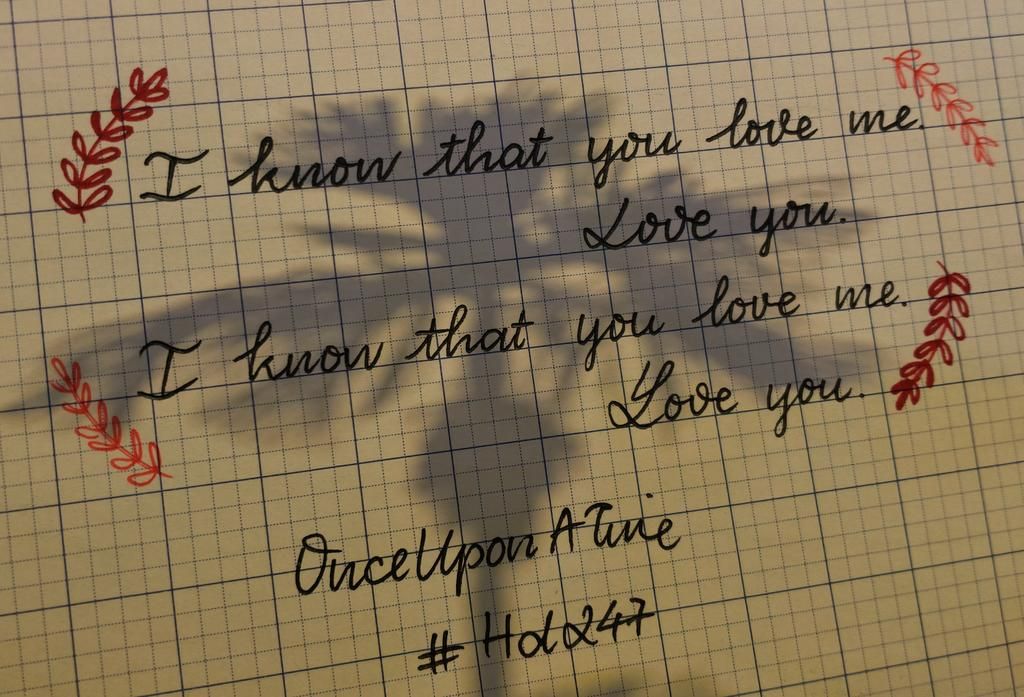 I know that you love me.
Love you.
I know that you love me.
Love you.
OnceUpon A Time
# Hd247